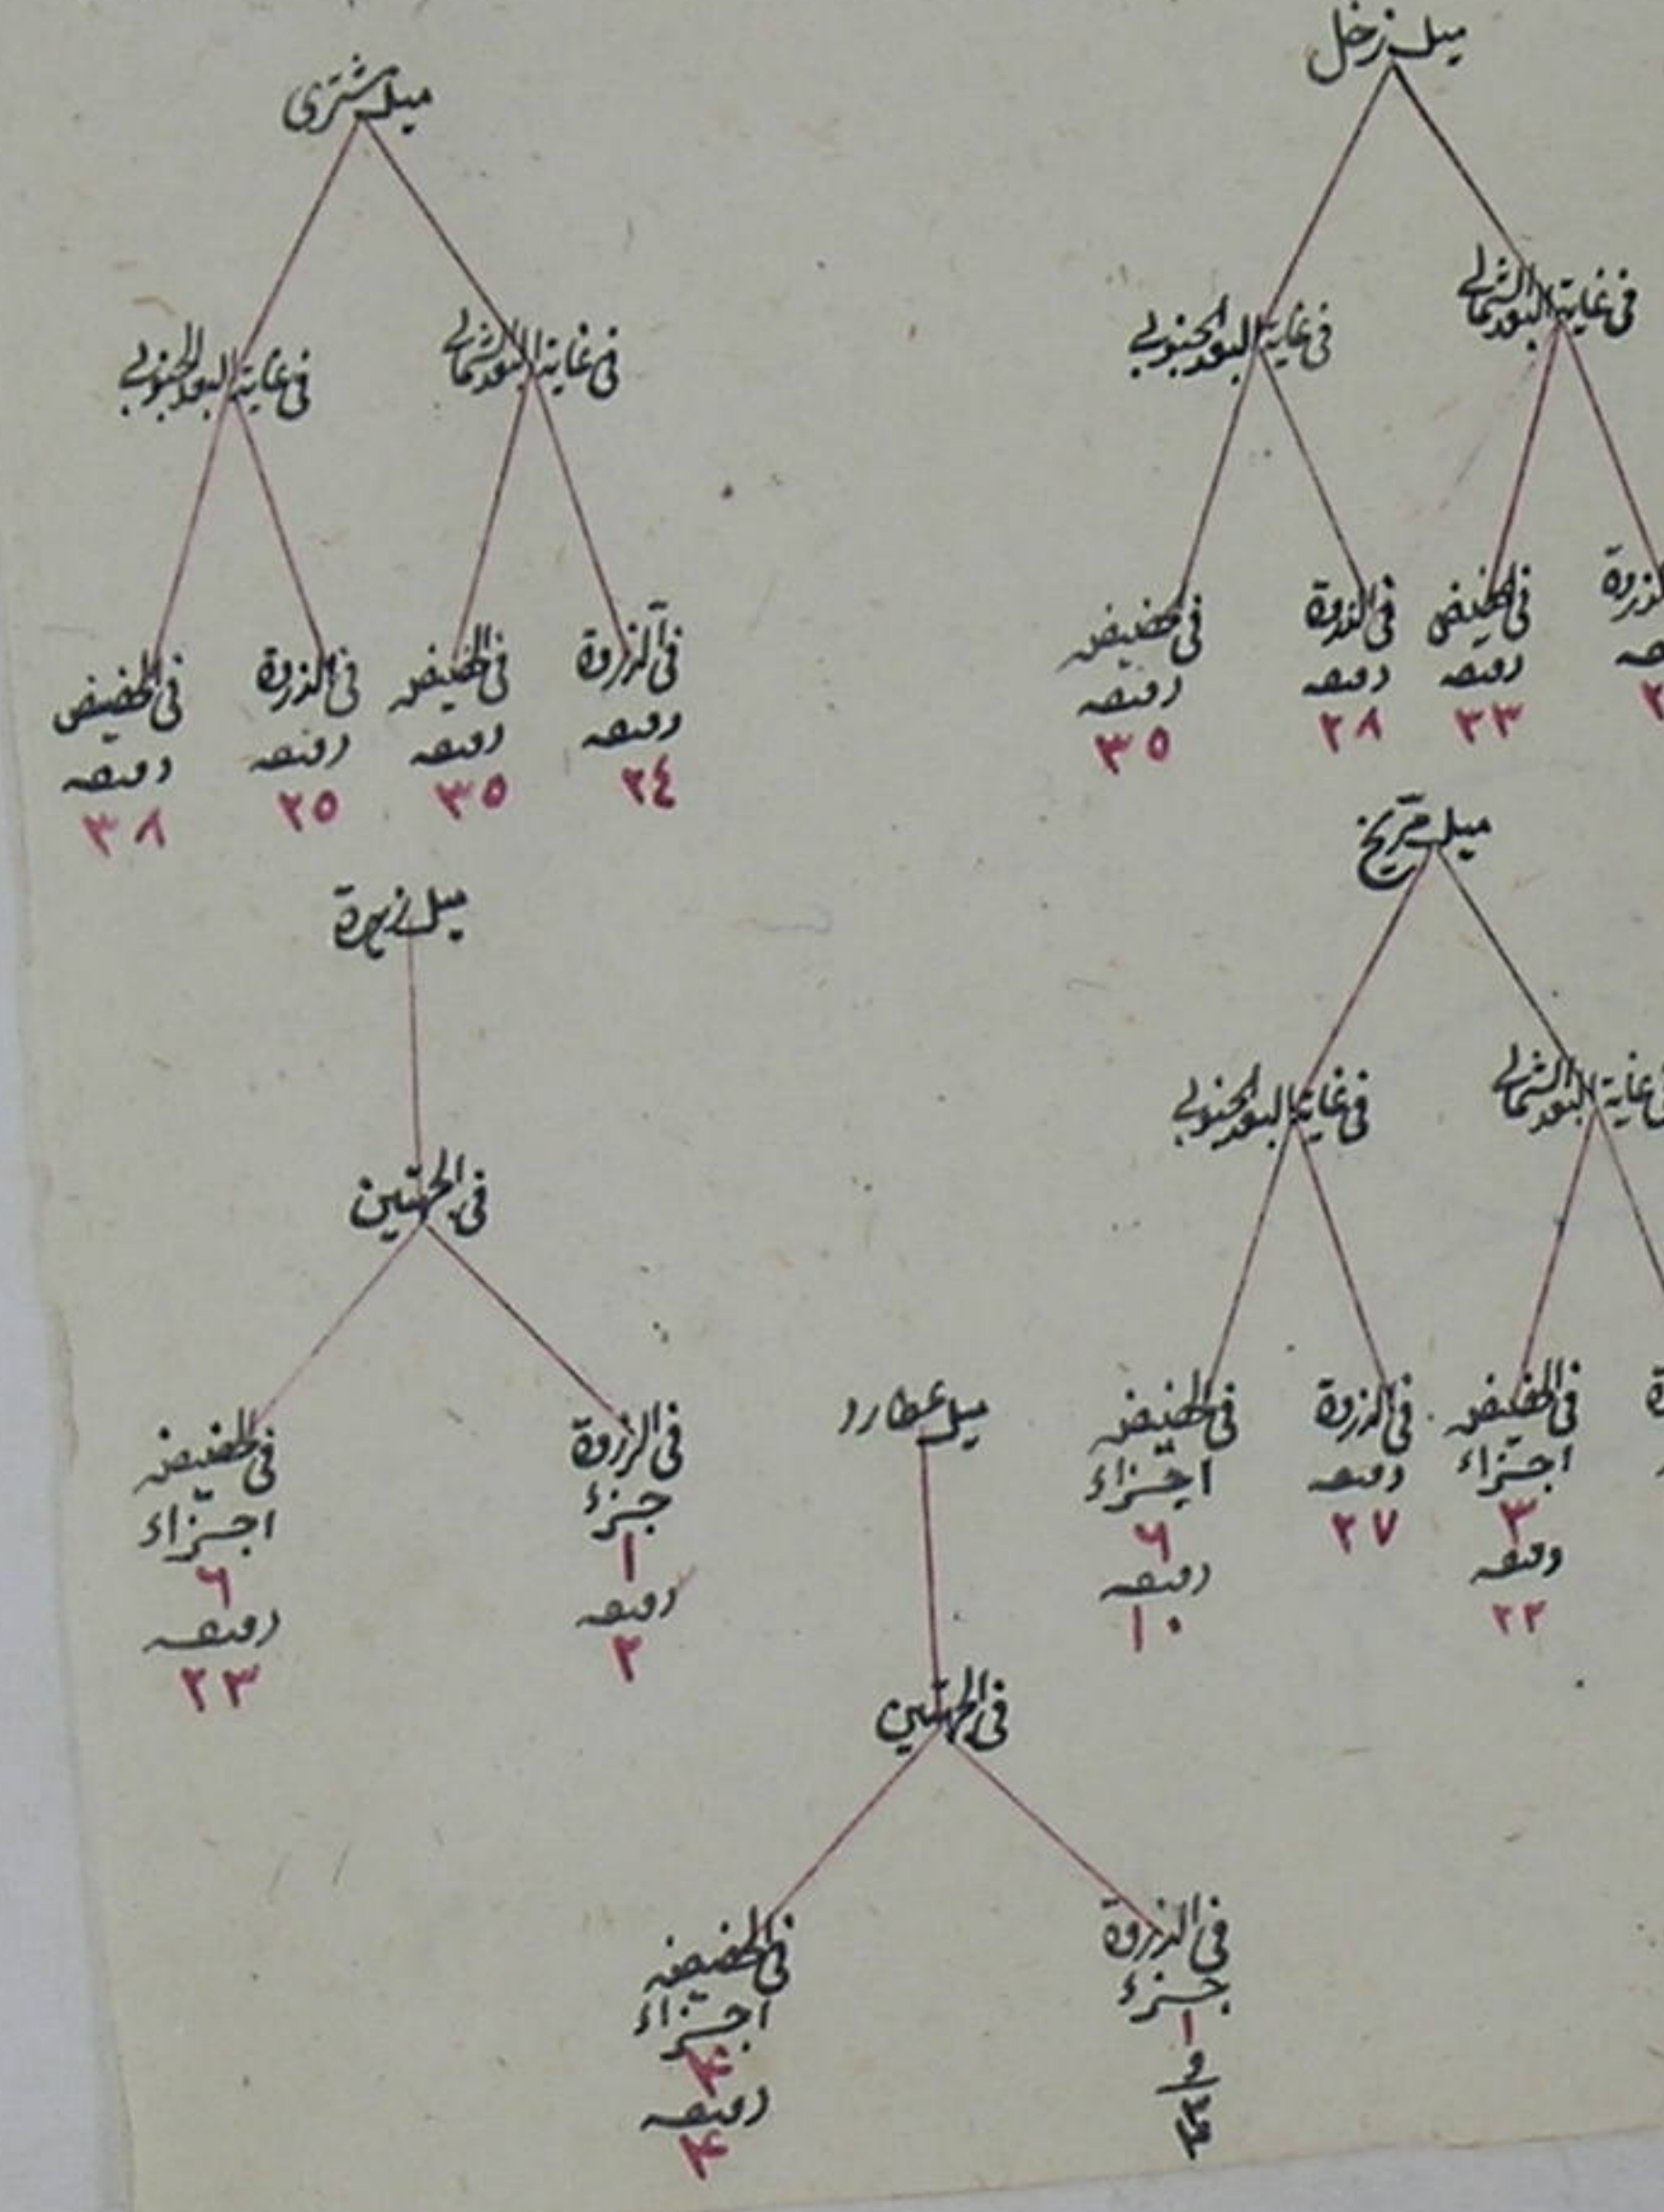 ميل زحل
في غاية البعد الشمالي
في غاية البعد الجنوبي
في الحضيض
دقيقه
٣٣
في الذروة
دقيقه
٢٨
في الحضيض
دقيقه
٣٥
ميل مشترى
في غاية البعد الشمالي
في غاية البعد الجنوبي
في الذروة
دقيقه
٢٤
في الحضيض
دقيقه
٣٥
في الذروة
دقيقه
٢٥
في الحضيض
دقيقه
٣٨
ميل مرّيخ
غاية البعد الشمالي
في غاية البعد الجنوبي
في الحضيض
اجزاء
٣
دقيقه
٢٢
في الذروة
دقيقه
٢٧
في الحضيض
اجزاء
٦
دقيقه
١٠
ميل زهرة
في الجهتين
في الذروة
جزء
١
دقيقه
٢
في الحضيض
اجزاء
٦
دقيقه
٢٣
ميل عطارد
في الجهتين
في الذروة
جزء
١
في الحضيض
اجزاء
٤
دقيقه
٤